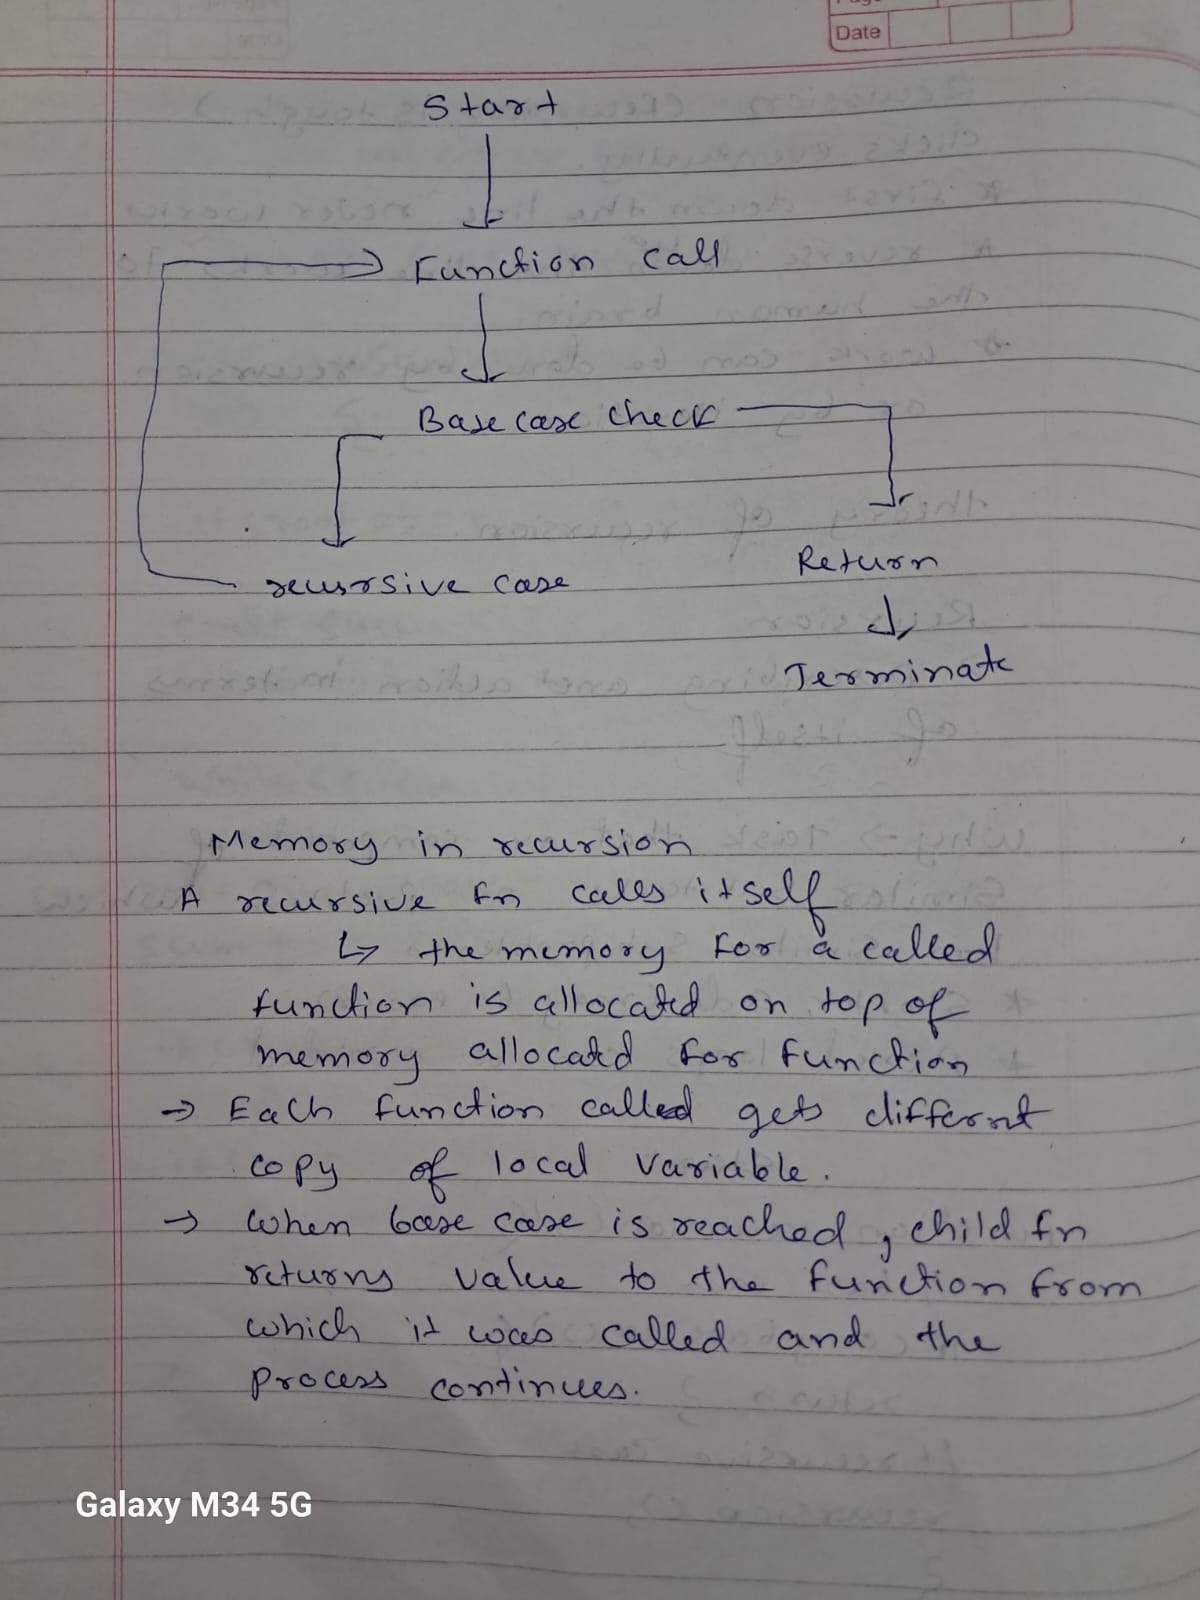 Date
Start
Function call
Base case check
recursive case
Return
Terminate
Memory in recursion
A recursive fn calls itself
↳ the memory for a called
function is allocated on top of
memory allocated for function
→ Each function called gets differnt
copy of local variable.
→ When base case is reached, child fn
returns value to the function from
which it was called and the
process continues.
Galaxy M34 5G